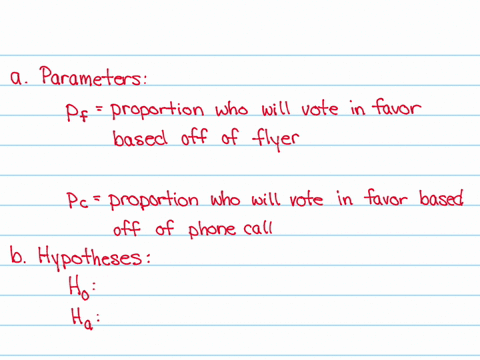 a. Parameters:
Pf = proportion who will vote in favor
based off of flyer
Pc = proportion who will vote in favor based
off of phone call
b. Hypotheses:
H0:
Ha: